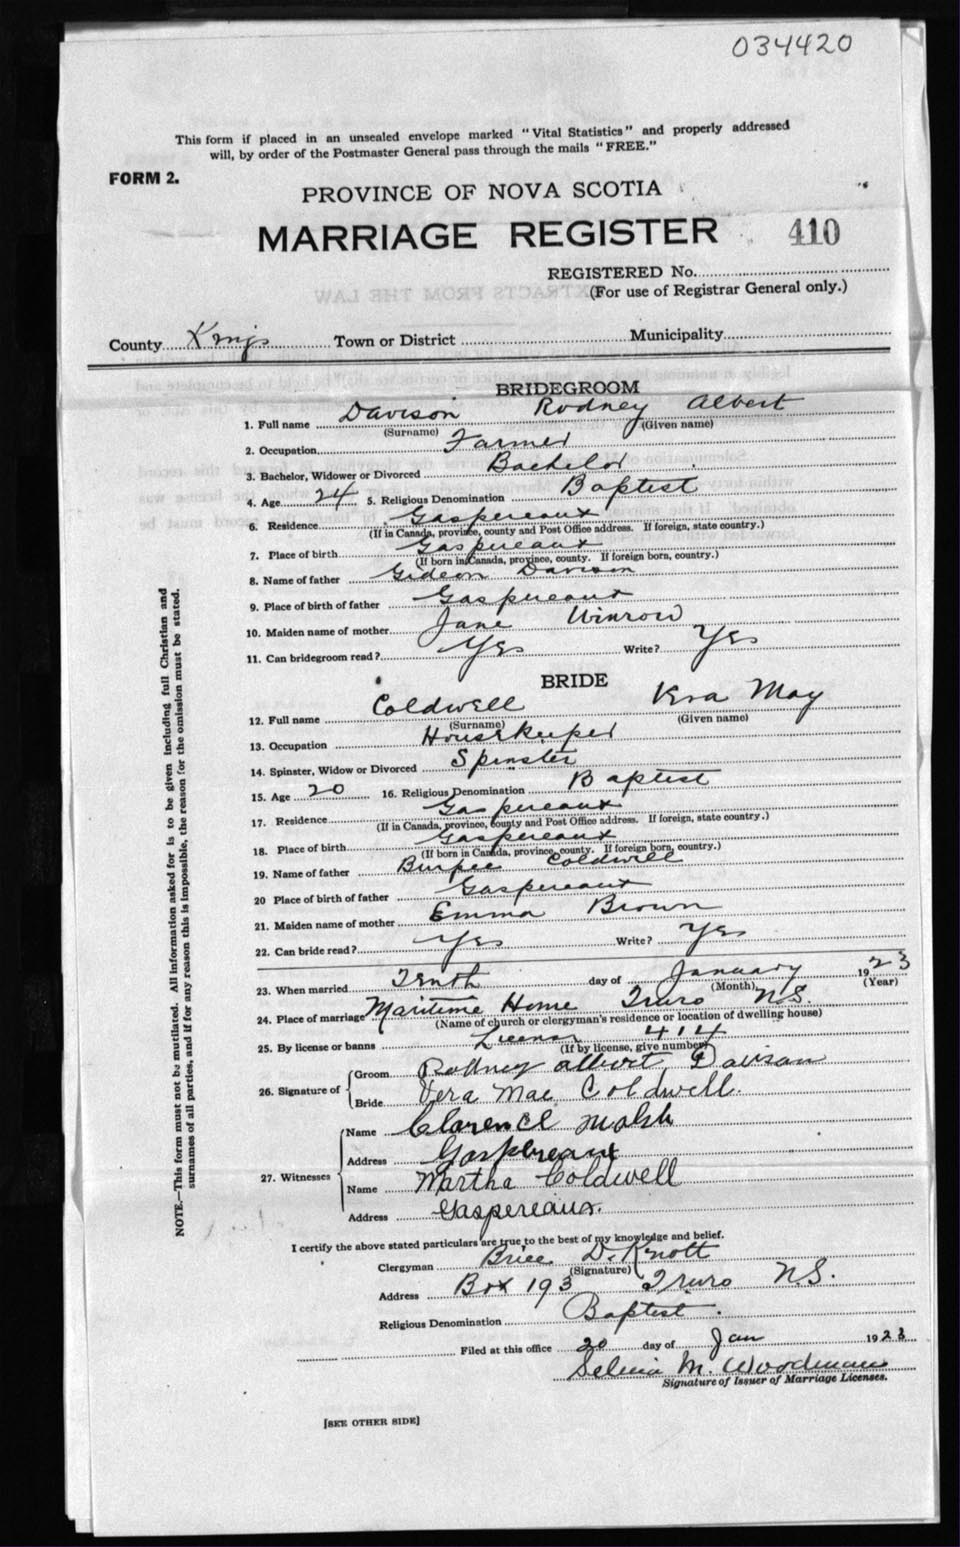 034420
This form if placed in an unsealed envelope marked "Vital Statistics" and properly addressed
will, by order of the Postmaster General pass through the mails "FREE."
FORM 2.
PROVINCE OF NOVA SCOTIA
MARRIAGE REGISTER 410
REGISTERED No.
(For use of Registrar General only.)
County Kings Town or District Municipality
BRIDEGROOM
1. Full name Davison Rodney Albert
(Surname) (Given name)
2. Occupation Farmer
3. Bachelor, Widower or Divorced Bachelor
4. Age 24 5. Religious Denomination Baptist
6. Residence Gaspereaux
(If in Canada, province, county and Post Office address. If foreign, state country.)
7. Place of birth Gaspereaux
(If born in Canada, province, county. If foreign born, country.)
8. Name of father Gideon Davison
9. Place of birth of father Gaspereaux
10. Maiden name of mother Jane Winrow
11. Can bridegroom read? Yes Write? Yes
BRIDE
12. Full name Coldwell Vera May
(Surname) (Given name)
13. Occupation Housekeeper
14. Spinster, Widow or Divorced Spinster
15. Age 20 16. Religious Denomination Baptist
17. Residence Gaspereaux
(If in Canada, province, county and Post Office address. If foreign, state country.)
18. Place of birth Gaspereaux
(If born in Canada, province, county. If foreign born, country.)
19. Name of father Burpee Coldwell
20 Place of birth of father Gaspereaux
21. Maiden name of mother Emma Brown
22. Can bride read? Yes Write? Yes
23. When married Tenth day of January 1923
(Month) (Year)
24. Place of marriage Maritime Home Truro N.S.
(Name of church or clergyman's residence or location of dwelling house)
25. By license or banns License 414
(If by license, give number)
26. Signature of Groom Rodney albert Davison
Bride Vera Mae Coldwell.
27. Witnesses Name Clarence Walsh
Address Gaspereaux
Name Martha Coldwell
Address Gaspereaux.
I certify the above stated particulars are true to the best of my knowledge and belief.
Clergyman Brice D. Knott
(Signature)
Address Box 193 Truro N.S.
Religious Denomination Baptist.
Filed at this office 20 day of Jan 1923
Selina M. Woodman
Signature of Issuer of Marriage Licenses.
[SEE OTHER SIDE]
NOTE.—This form must not be mutilated. All information asked for is to be given including full Christian and
surnames of all parties, and if for any reason this is impossible, the reason for the omission must be stated.